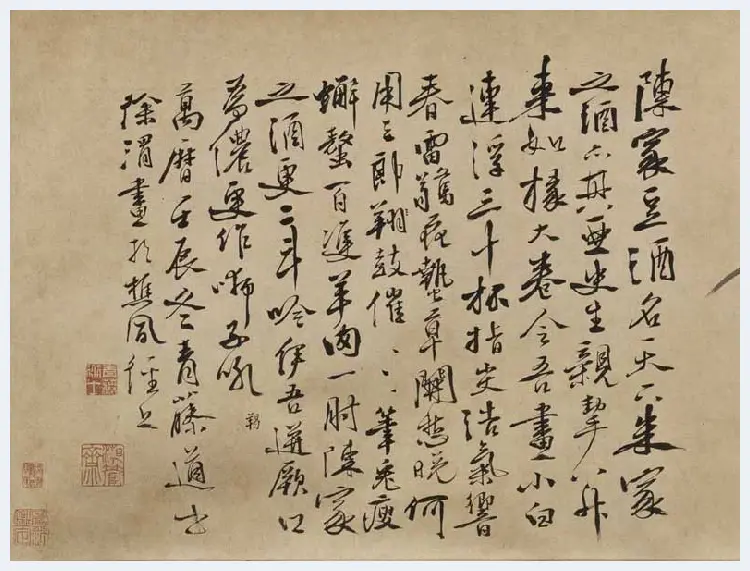 陳家豆酒名天下朱家
之酒亦其亞史生親挈八升
來如椽大卷令吾畫小白
連浮三十杯指尖浩氣響
春雷驚花蟄草開愁晚何
用三郎翔鼓催々々筆兔瘦
蠏螯百雙羊肉一肘陳家
之酒更二斗吟伊吾迸厥口
為儂更作獅子吼 羯
萬曆壬辰冬青藤道士
徐渭畫於樵風徑上